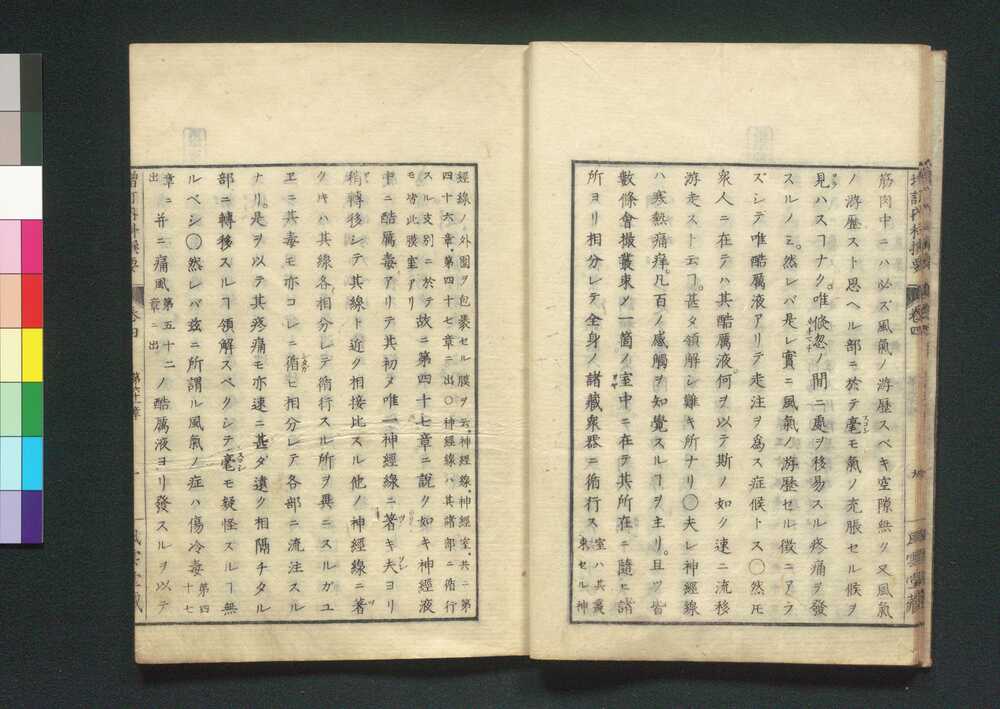 筋肉中ニハ必ズ風氣ノ游歴スベキ空隙無ク又風氣
ノ游歴スト思ヘル部ニ於テ毫モ氣ノ充脹セル候ヲ
見ハスヿナク。唯倐忽ノ間ニ處ヲ移易スル疼痛ヲ發
スルノミ。然レバ是レ實ニ風氣ノ游歴セル徴ニアラ
ズシテ唯酷厲液アリテ走注ヲ爲ス症候トス〇然𪜈
衆人ニ在テハ其酷厲液何ヲ以テ斯ノ如ク速ニ流移
游走スト云フヿ。甚タ領解シ難キ所ナリ〇夫レ神經線
ハ寒熱痛痒。凡百ノ感觸ヲ知覺スルヿヲ主リ。且ツ皆
數條會撮叢束ノ一箇ノ室中ニ在テ其所在ニ隨ヒ諸
所ヨリ相分レテ全身ノ諸藏衆器ニ循行ス 室ハ其叢束セル神
經線ノ外圍ヲ包裹セル膜ヲ云。神經線。神經室。共ニ第
四十六章。第四十七章ニ出〇神經線ハ其諸部ニ循行
スル支別ニ於テモ皆此膜室アリ 故ニ第四十七章ニ説ク如キ神經液
中ニ酷厲毒アリテ其初メ唯一神經線ニ著キ夫ヨリ
稍轉移シテ其線ト近ク相接比スル他ノ神經線ニ著
ク𪜈ハ其線各相分レテ循行スル所ヲ異ニスルガユ
ヱニ其毒モ亦コレニ循ヒ相分レテ各部ニ流注スル
ナリ。是ヲ以テ其疼痛モ亦速ニ甚ダ遠ク相隔チタル
部ニ轉移スルヿ領解スベクシテ毫モ疑怪スルヿ無
ルベシ〇然レバ玆ニ所謂ル風氣ノ症ハ傷冷毒 第四十七
章ニ出 并ニ痛風 第五十二章ニ出 ノ酷厲液ヨリ發スルヲ以テ
卷四